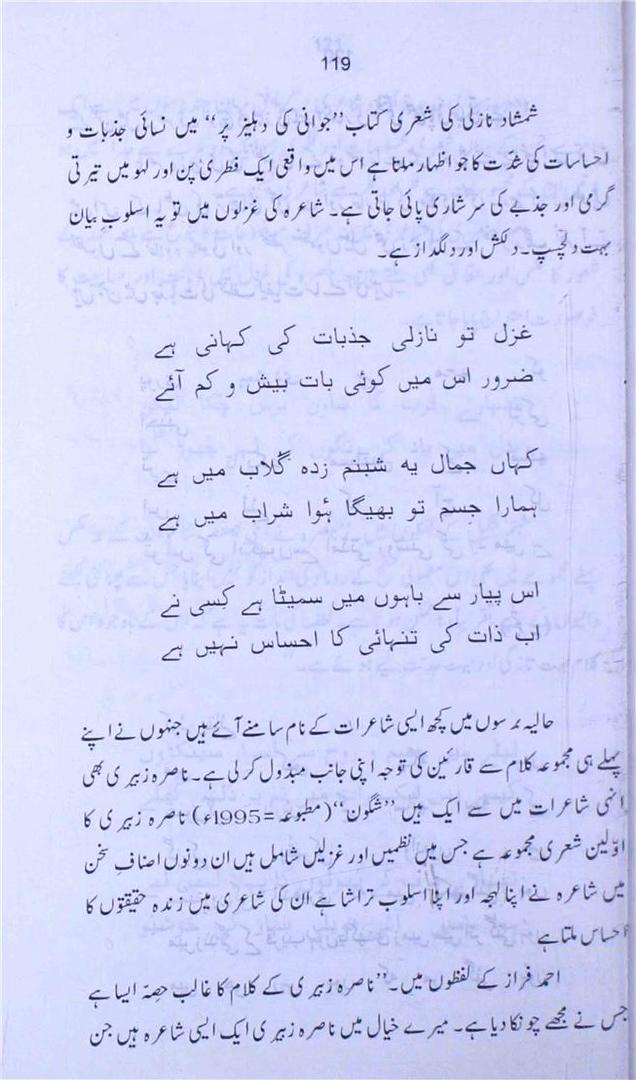 119
شمشاد نازلی کی شعری کتاب ”جوانی کی دہلیز پر“ میں نسائی جذبات و
احساسات کی شدّت کا جو اظہار ملتا ہے اس میں واقعی ایک فطری پن اور لہو میں تیرتی
گرمی اور جذبے کی سرشاری پائی جاتی ہے۔ شاعرہ کی غزلوں میں تو یہ اسلوبِ بیان
بہت دلچسپ۔ دلکش اور دلگداز ہے۔
غزل تو نازلی جذبات کی کہانی ہے
ضرور اس میں کوئی بات بیش و کم آئے
کہاں جمال یہ شبنم زدہ گلاب میں ہے
ہمارا جسم تو بھیگا ہُوا شراب میں ہے
اس پیار سے باہوں میں سمیٹا ہے کِسی نے
اب ذات کی تنہائی کا احساس نہیں ہے
حالیہ برسوں میں کچھ ایسی شاعرات کے نام سامنے آئے ہیں جنہوں نے اپنے
پہلے ہی مجموعہ کلام سے قارئین کی توجہ اپنی جانب مبذول کر لی ہے۔ ناصرہ زبیری بھی
انہی شاعرات میں سے ایک ہیں ”شگون“ (مطبوعہ=1995ء) ناصرہ زبیری کا
اوّلین شعری مجموعہ ہے جس میں نظمیں اور غزلیں شامل ہیں ان دونوں اصنافِ سخن
میں شاعرہ نے اپنا لہجہ اور اپنا اسلوب تراشا ہے ان کی شاعری میں زندہ حقیقتوں کا
احساس ملتا ہے
احمد فراز کے لفظوں میں۔ ”ناصرہ زبیری کے کلام کا غالب حِصّہ ایسا ہے
جس نے مجھے چونکا دیا ہے۔ میرے خیال میں ناصرہ زبیری ایک ایسی شاعرہ ہیں جن